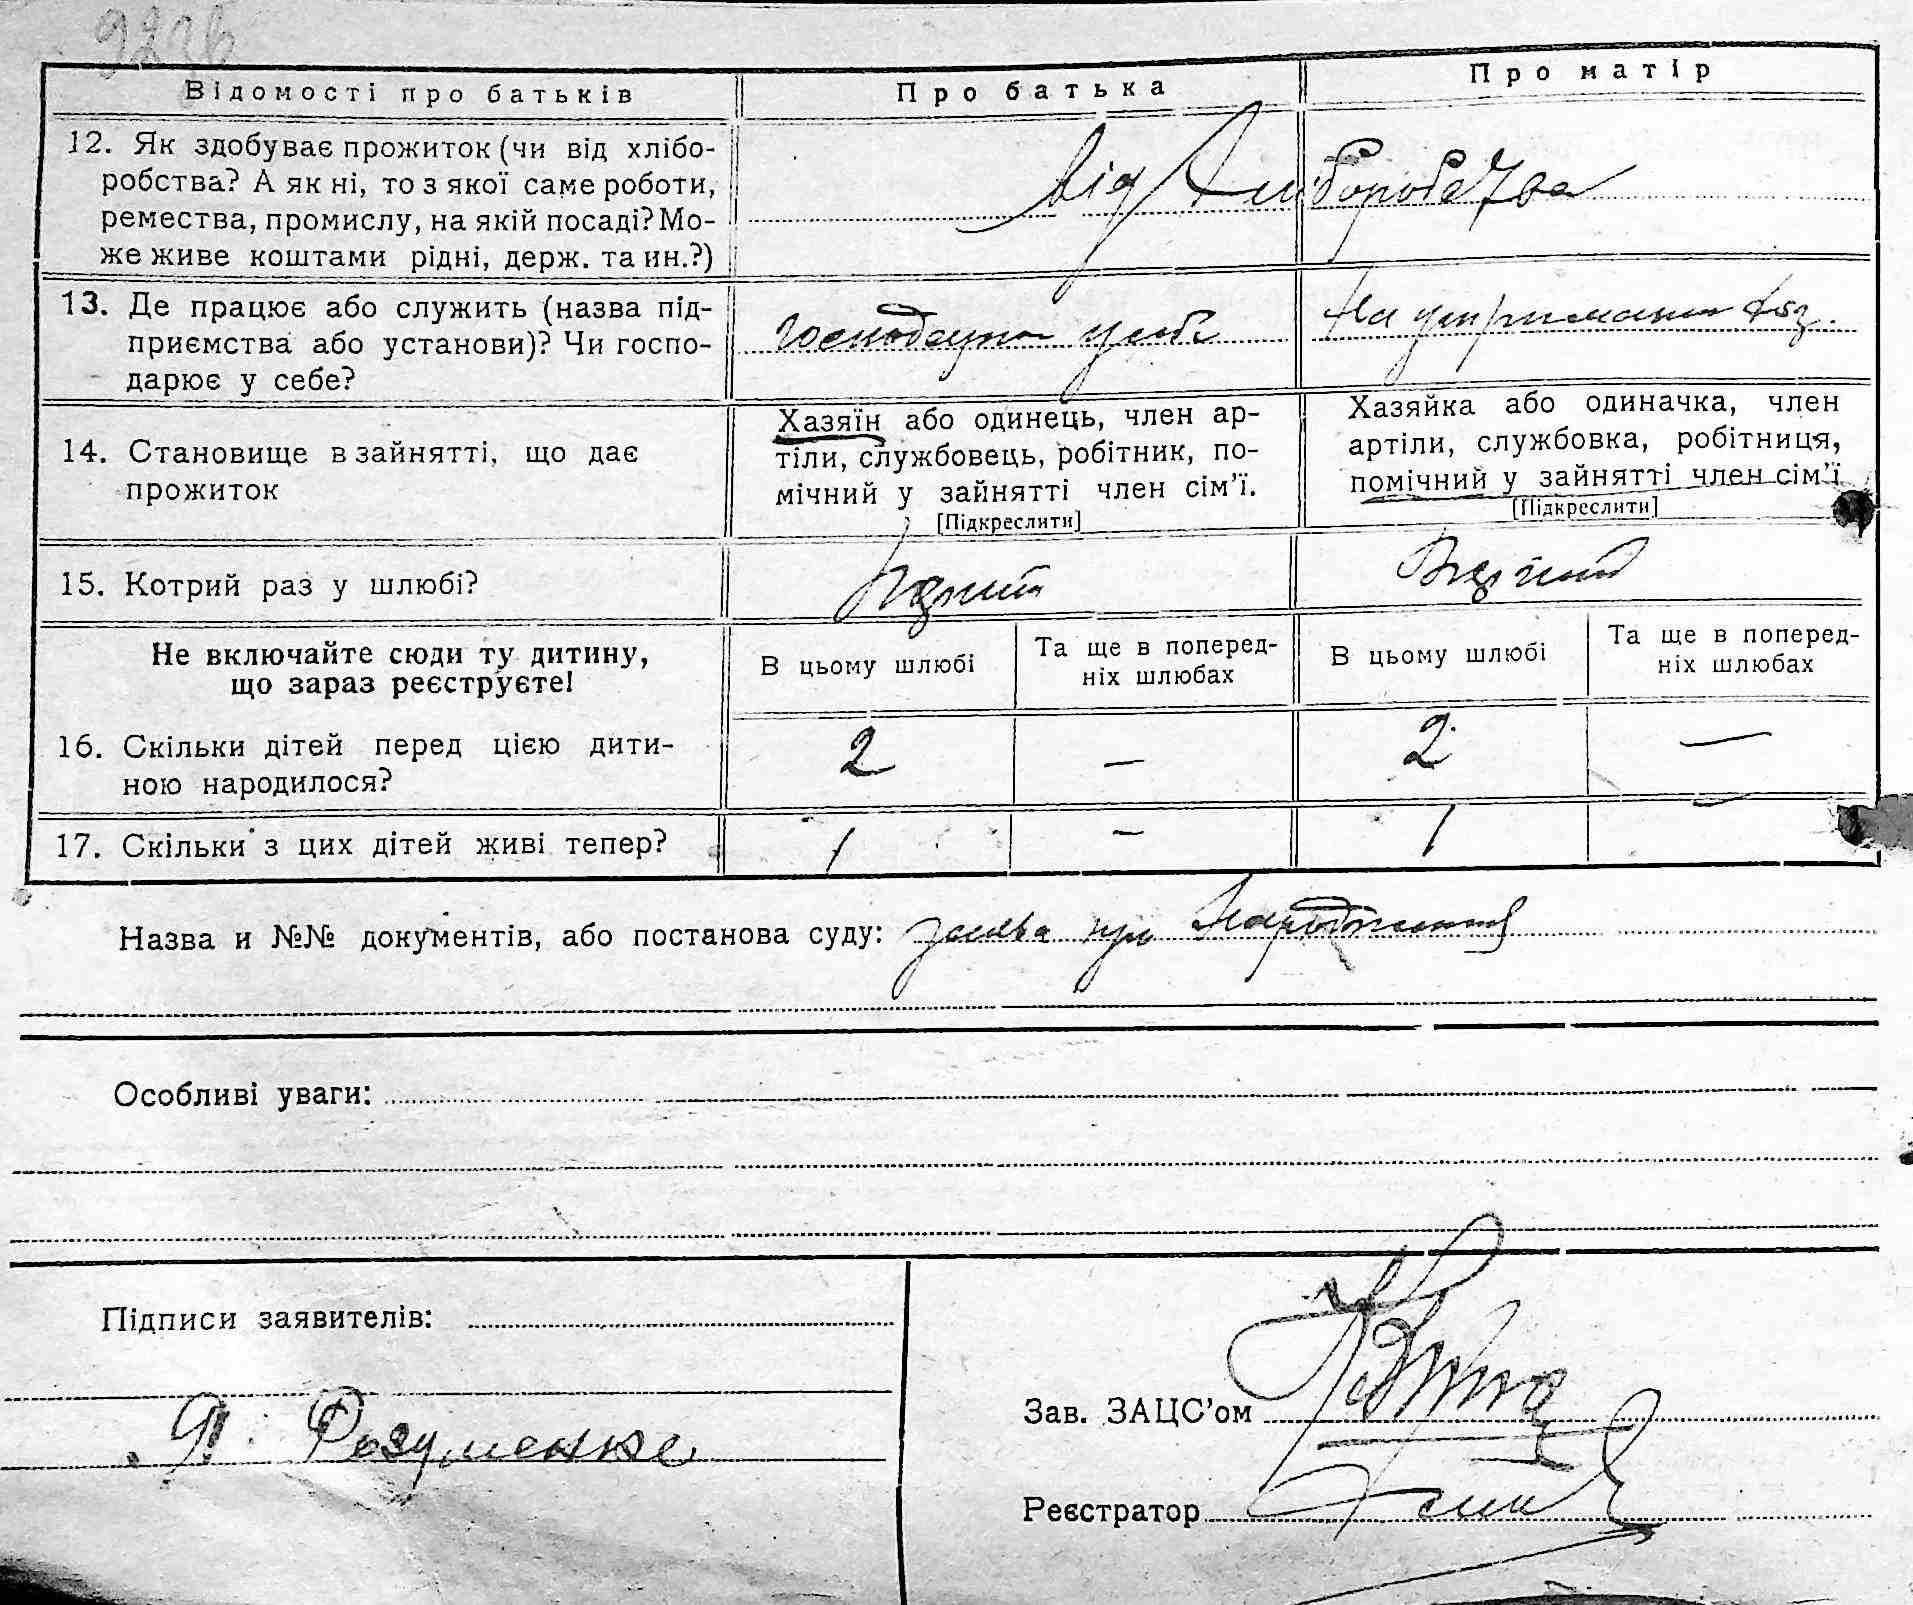 Відомості про батьків
Про батька
Про матір
12. Як здобуває прожиток (чи від хлібо-
робства? А як ні, то з якої саме роботи,
ремества, промислу, на якій посаді? Мо-
же живе коштами рідні, держ. та ин.?)
від хліборобства
13. Де працює або служить (назва під-
приємства або установи)? Чи госпо-
дарює у себе?
господарює у себе
На утриманні
14. Становище в зайнятті, що дає
прожиток
Хазяїн або одинець, член ар-
тіли, службовець, робітник, по-
мічний у зайнятті член сім'ї.
[Підкреслити]
Хазяйка або одиначка, член
артіли, службовка, робітниця,
помічний у зайнятті член сім'ї
[Підкреслити]
15. Котрий раз у шлюбі?
Не включайте сюди ту дитину,
що зараз реєструєте!
В цьому шлюбі
Та ще в поперед-
ніх шлюбах
В цьому шлюбі
Та ще в поперед-
ніх шлюбах
16. Скільки дітей перед цією дити-
ною народилося?
2 — 2 —
17. Скільки з цих дітей живі тепер?
1 — 1 —
Назва и №№ документів, або постанова суду: заява про народження
Особливі уваги:
Підписи заявителів:
Я. Розуменко
Зав. ЗАЦС'ом
Реєстратор